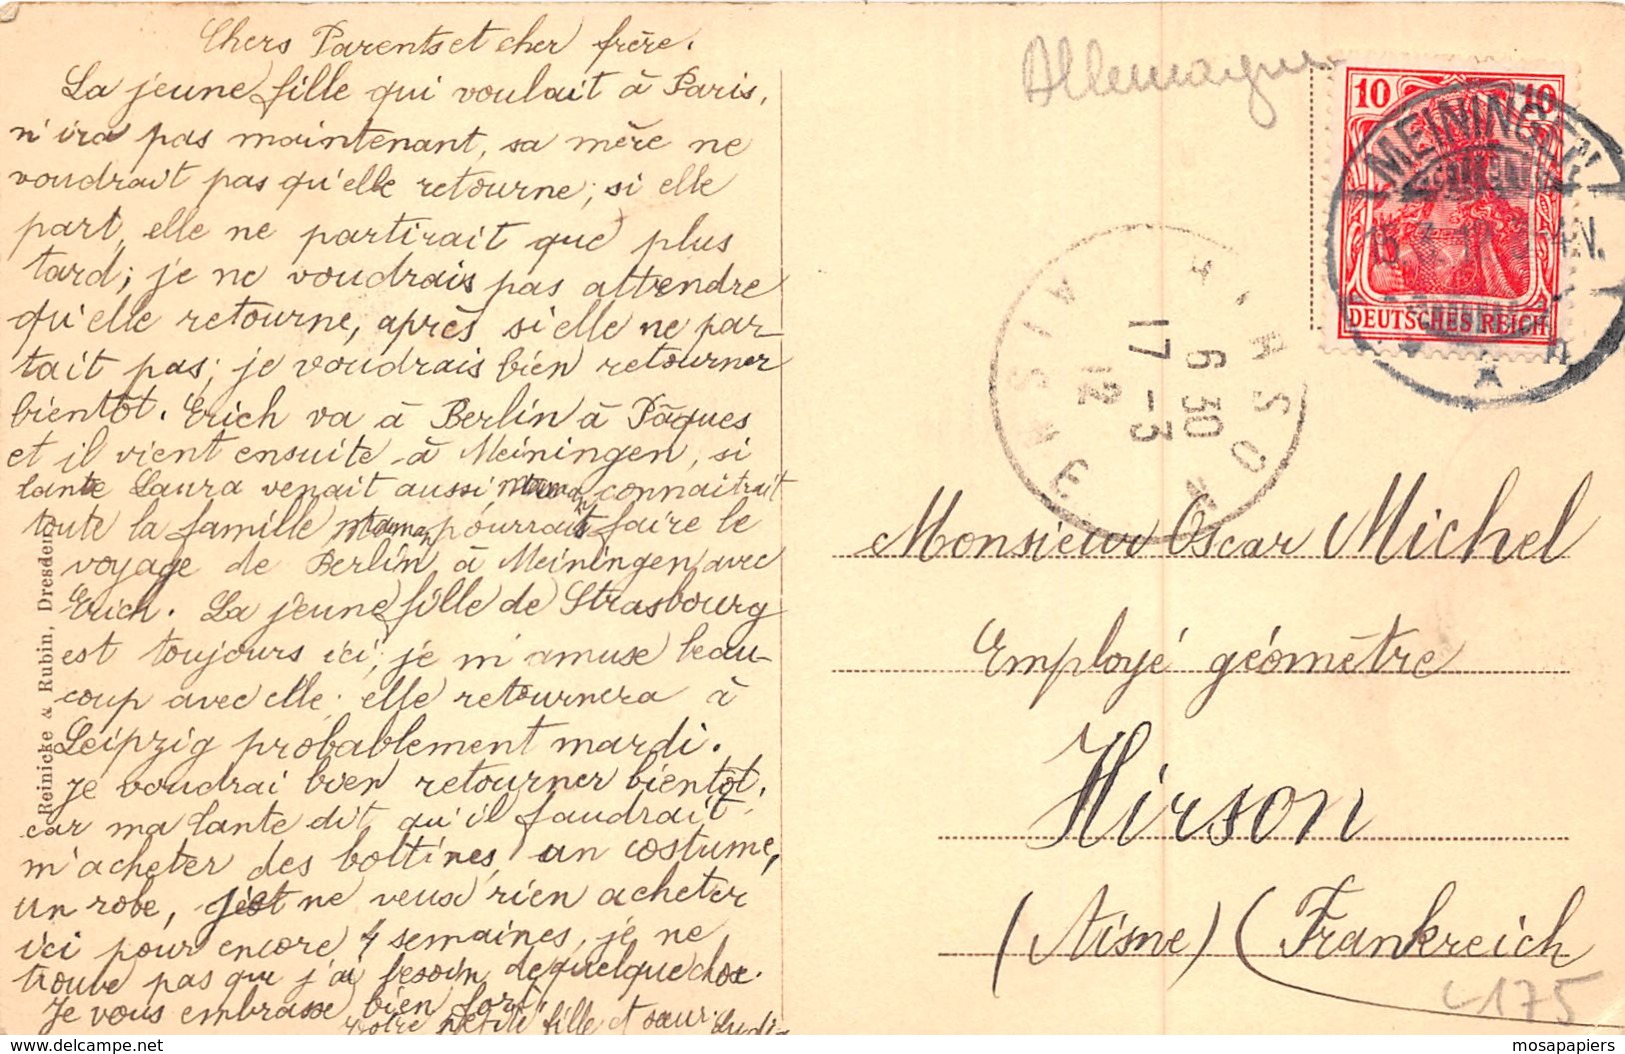 Chers Parents et cher frère.
La jeune fille qui voulait à Paris,
n'ira pas maintenant, sa mère ne
voudrait pas qu'elle retourne; si elle
part, elle ne partirait que plus
tard; je ne voudrais pas attendre
qu'elle retourne, après si elle ne par-
tait pas; je voudrais bien retourner
bientôt. Erich va à Berlin à Pâques
et il vient ensuite à Meiningen, si
tante Laura venait aussi connaitrait
toute la famille Maman pourrait faire le
voyage de Berlin à Meiningen avec
Erich. La jeune fille de Strasbourg
est toujours ici; je m'amuse beau-
coup avec elle; elle retournera à
Leipzig probablement mardi.
Je voudrai bien retourner bientôt,
car ma tante dit qu'il faudrait
m'acheter des bottines, un costume,
un robe, ne veux rien acheter
ici pour encore 4 semaines, je ne
trouve pas que j'ai besoin de quelque chose.
Je vous embrasse bien fort
votre petite fille et sœur
Reinicke & Rubin, Dresden
Allemagne
10 10
DEUTSCHES REICH
MEININGEN
HIRSON
6 30
17 - 3
12
AISNE
Monsieur Oscar Michel
Employé géomètre
Hirson
(Aisne) (Frankreich
175
mosapapiers
delcampe.net